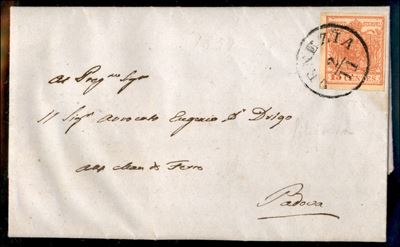 VENEZIA
2/11
Al Preg.mo Sig.r
Il Sig.r Avvocato Eugenio D.r Drigo
alla Man di Ferro
Padova